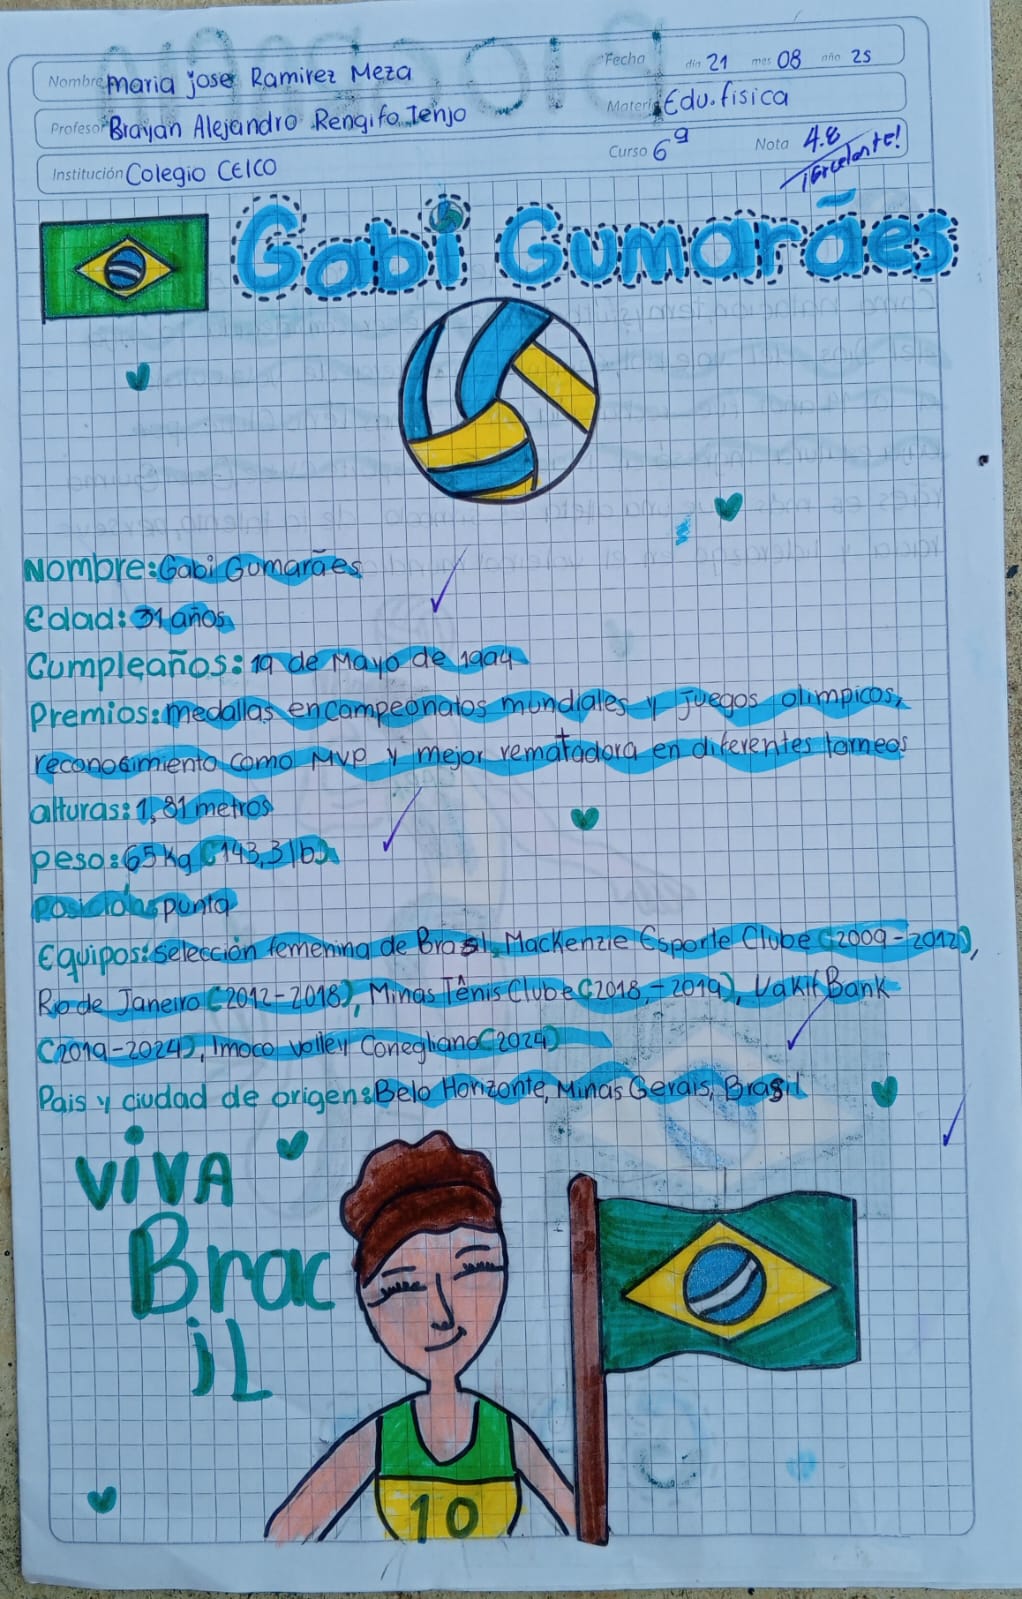 Nombre maria jose Ramirez Meza Fecha día 21 mes 08 año 25
Profesor Brayan Alejandro Rengifo Tenjo Materia Edu.fisica
Institución Colegio CELCO Curso 6º Nota 4.8
¡Excelente!
Gabi Gumarães
Nombre: Gabi Gumarães
Edad: 31 años
Cumpleaños: 19 de Mayo de 1994
Premios: medallas en campeonatos mundiales y juegos olimpicos,
reconocimiento como MVP y mejor rematadora en diferentes torneos
alturas: 1,81 metros
peso: 65 Kg (143,3 lb)
Posición: punta
Equipos: selección femenina de Brasil, Mackenzie Esporte Clube (2009-2012),
Rio de Janeiro (2012-2018), Minas Tênis Clube (2018-2019), VakifBank
(2019-2024), Imoco Volley Conegliano (2024)
Pais y ciudad de origen: Belo Horizonte, Minas Gerais, Brasil
VIVA
Brac
iL
10